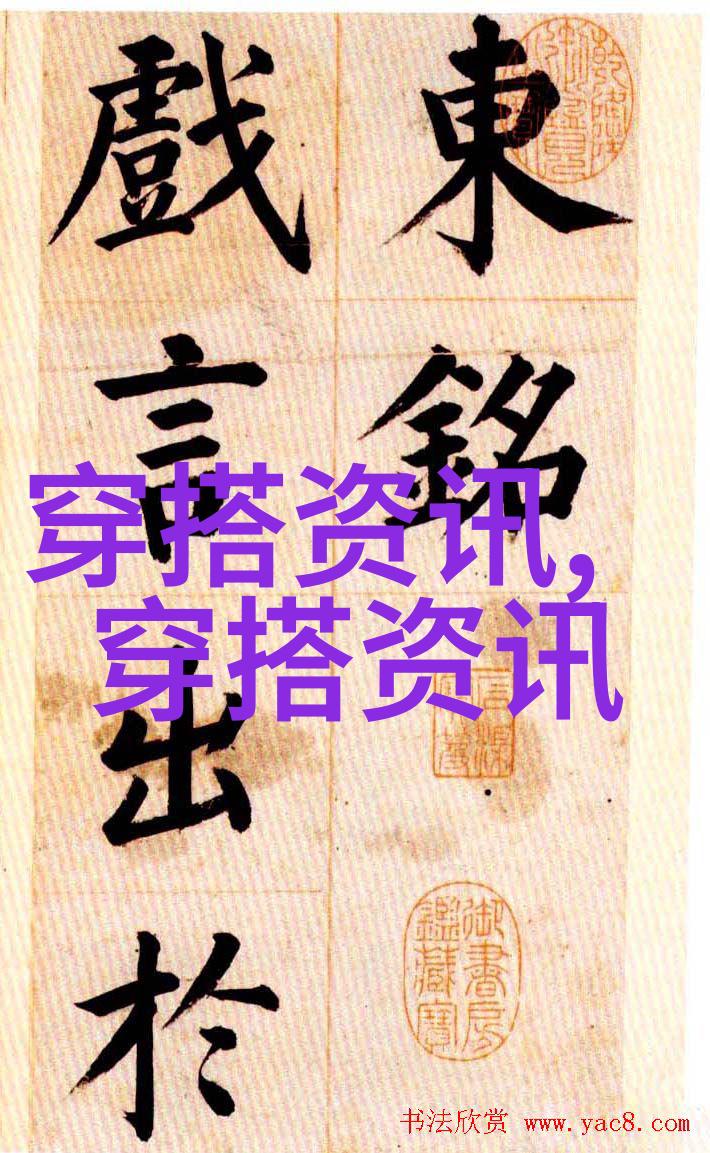 東銘
戲言出於
穿搭资讯,
穿搭资讯
御書房
鑑藏寶
书法欣赏 www.yac8.com